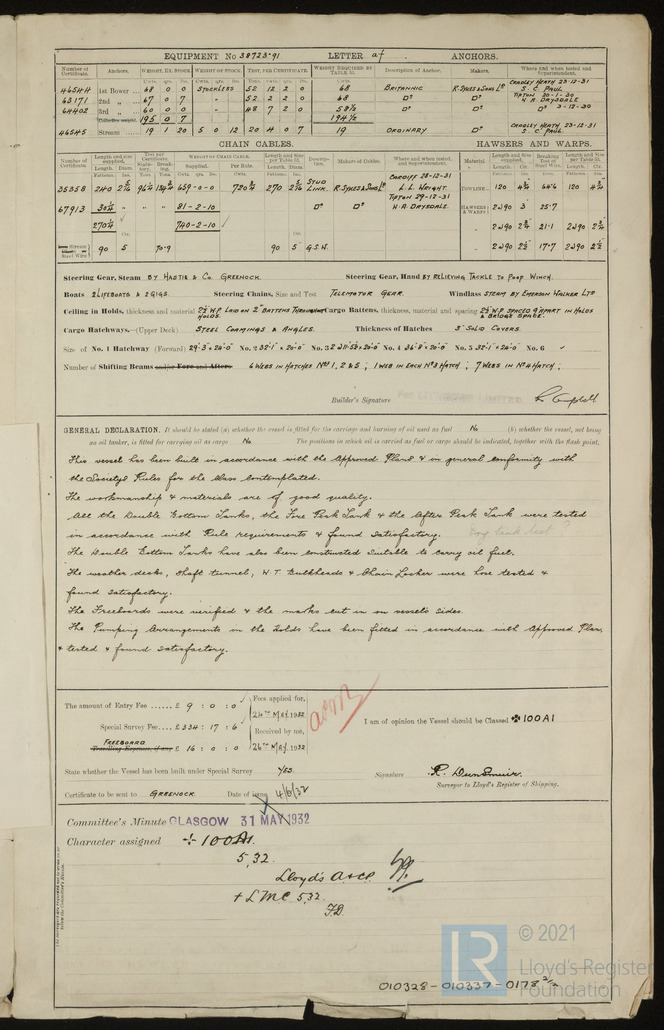 EQUIPMENT No 38723.91 LETTER af ANCHORS.
Number of Certificate. Anchors. WEIGHT, EX. STOCK WEIGHT OF STOCK. TEST, PER CERTIFICATE. WEIGHT REQUIRED BY TABLE 53. Description of Anchor. Makers. Where and when tested and Superintendent.
46544 1st Bower ... 68 0 0 STOCKLESS 52 12 2 0 68 BRITANNIC R. SYKES & SONS Ld CRADLEY HEATH 23-12-31 S. C. PAUL
63171 2nd „ ... 67 0 7 52 2 2 0 68 Do Do TIPTON 20-1-30 H.A. DRYSDALE
64402 3rd „ ... 60 0 0 48 7 2 0 58½ Do Do Do 3-12-30
Collective weight. 195 0 7 194½
46545 Stream ... 19 1 20 5 0 12 20 4 0 7 19 ORDINARY Do CRADLEY HEATH 23-12-31 S. C. PAUL
CHAIN CABLES. HAWSERS AND WARPS.
35358 240 659-0-0 720¼ 270 STUD LINK. R. SYKES & SONS Ld CARDIFF 28-12-31 L. L. WRIGHT. TOWLINE... 120 4¾ 64.6 120 4¾
67913 30¼ „ „ „ 81-2-10 Do Do TIPTON 29-12-31 H.A. DRYSDALE. HAWSERS & WARPS 2@90 3 25.7
270¼ 740-2-10 „ 2@90 2¾ 21.1 2@90 2¾
Stream Steel Wire 90 5 70.9 90 5 G.S.W. „ 2@90 2½ 17.7 2@90 2½
Steering Gear, Steam BY HASTIE & Co. GREENOCK. Steering Gear, Hand BY RELIEVING TACKLE TO POOP WINCH.
Boats 2 LIFEBOATS & 2 GIGS. Steering Chains, Size and Test TELEMOTOR GEAR. Windlass STEAM BY EMERSON WALKER LTD
Ceiling in Holds, thickness and material 2½" W.P. LAID ON 2" BATTENS THROUGHOUT HOLDS. Cargo Battens, thickness, material and spacing 2½" W.P. SPACED 9" APART IN HOLDS & BRIDGE SPACE.
Cargo Hatchways.—(Upper Deck) STEEL COAMINGS & ANGLES. Thickness of Hatches 3" SOLID COVERS.
Size of No. 1 Hatchway (Forward) 29'-3"×24'-0" No. 2 32'-1"×20'-0" No. 3 2@11'-5½"×20'-0" No. 4 36'-8"×20'-0" No. 5 32'-1"×24'-0" No. 6
Number of Shifting Beams and/or Fore and Afters. 6 WEBS IN HATCHES Nos 1, 2 & 5 ; 1 WEB IN EACH No 3 HATCH ; 7 WEBS IN No 4 HATCH ;
Builder's Signature
GENERAL DECLARATION. It should be stated (a) whether the vessel is fitted for the carriage and burning of oil used as fuel No (b) whether the vessel, not being
an oil tanker, is fitted for carrying oil as cargo No The positions in which oil is carried as fuel or cargo should be indicated, together with the flash point.
This vessel has been built in accordance with the Approved Plans & in general conformity with
the Societys Rules for the class contemplated.
The workmanship & materials are of good quality.
All the Double Bottom Tanks, the Fore Peak Tank & the After Peak Tank were tested
in accordance with Rule requirements & found satisfactory.
The Double Bottom Tanks have also been constructed suitable to carry oil fuel.
The weather decks, shaft tunnel, W.T. Bulkheads & Chain Locker were hose tested &
found satisfactory.
The Freeboards were verified & the marks cut in on vessels sides.
The Pumping Arrangements in the Holds have been fitted in accordance with Approved Plan,
& tested & found satisfactory.
The amount of Entry Fee ...... £ 9 : 0 : 0 Fees applied for, 24th MAY 1932
Special Survey Fee.... £ 334 : 17 : 6 Received by me, I am of opinion the Vessel should be Classed ✠ 100A1
FREEBOARD Travelling Expenses, if any £ 16 : 0 : 0 26th MAY 1932
State whether the Vessel has been built under Special Survey YES. Signature R. Dunsmuir.
Surveyor to Lloyd's Register of Shipping.
Certificate to be sent to GREENOCK. Date of issue 4/6/32
Committee's Minute GLASGOW 31 MAY 1932
Character assigned + 100A1.
5.32.
Lloyd's A&CP.
+ LMC 5.32.
F.D.
LR © 2021
Lloyd's Register
Foundation
010328-010337-0178 2/2